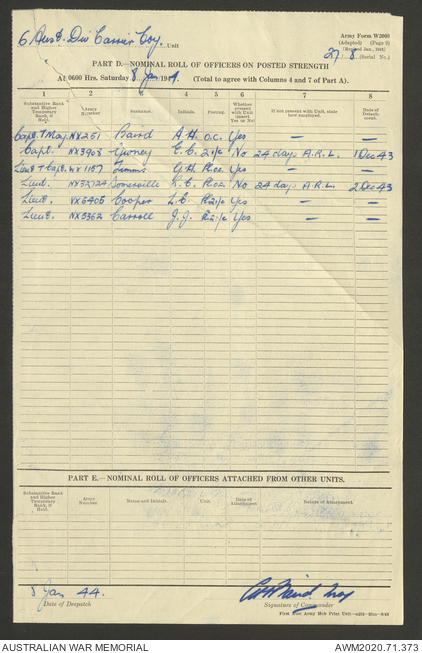 6 Aust. Div Carrier Coy. Unit
Army Form W3008
(Adapted) (Page 2)
[Revised Jan., 1943]
27/8 (Serial No.)
PART D.—NOMINAL ROLL OF OFFICERS ON POSTED STRENGTH
At 0600 Hrs. Saturday 8 Jan 1944. (Total to agree with Columns 4 and 7 of Part A).
1 2 3 4 5 6 7 8
Substantive Rank and Higher Temporary Rank, if Held. Army Number. Surname. Initials. Posting. Whether present with Unit (insert Yes or No) If not present with Unit, state how employed. Date of Detachment.
Capt. T/Maj. NX251 Baird A.H. O.C. Yes — —
Capt. NX3908 E.C. 2i/c No 24 days A.R.L. 1 Dec 43
Lieut T/Capt. WX1157 Timms G.H. Yes — —
Lieut. Somerville R.C. No 24 days A.R.L. 2 Dec 43
Lieut. VX6405 Cooper L.C. Yes — —
Lieut. NX5362 Carroll J.J. Yes — —
PART E.—NOMINAL ROLL OF OFFICERS ATTACHED FROM OTHER UNITS.
Substantive Rank and Higher Temporary Rank, if Held. Army Number. Name and Initials. Unit. Date of Attachment Nature of Attachment.
8 Jan 44. Baird Maj
Date of Despatch Signature of Commander
AUSTRALIAN WAR MEMORIAL AWM2020.71.373